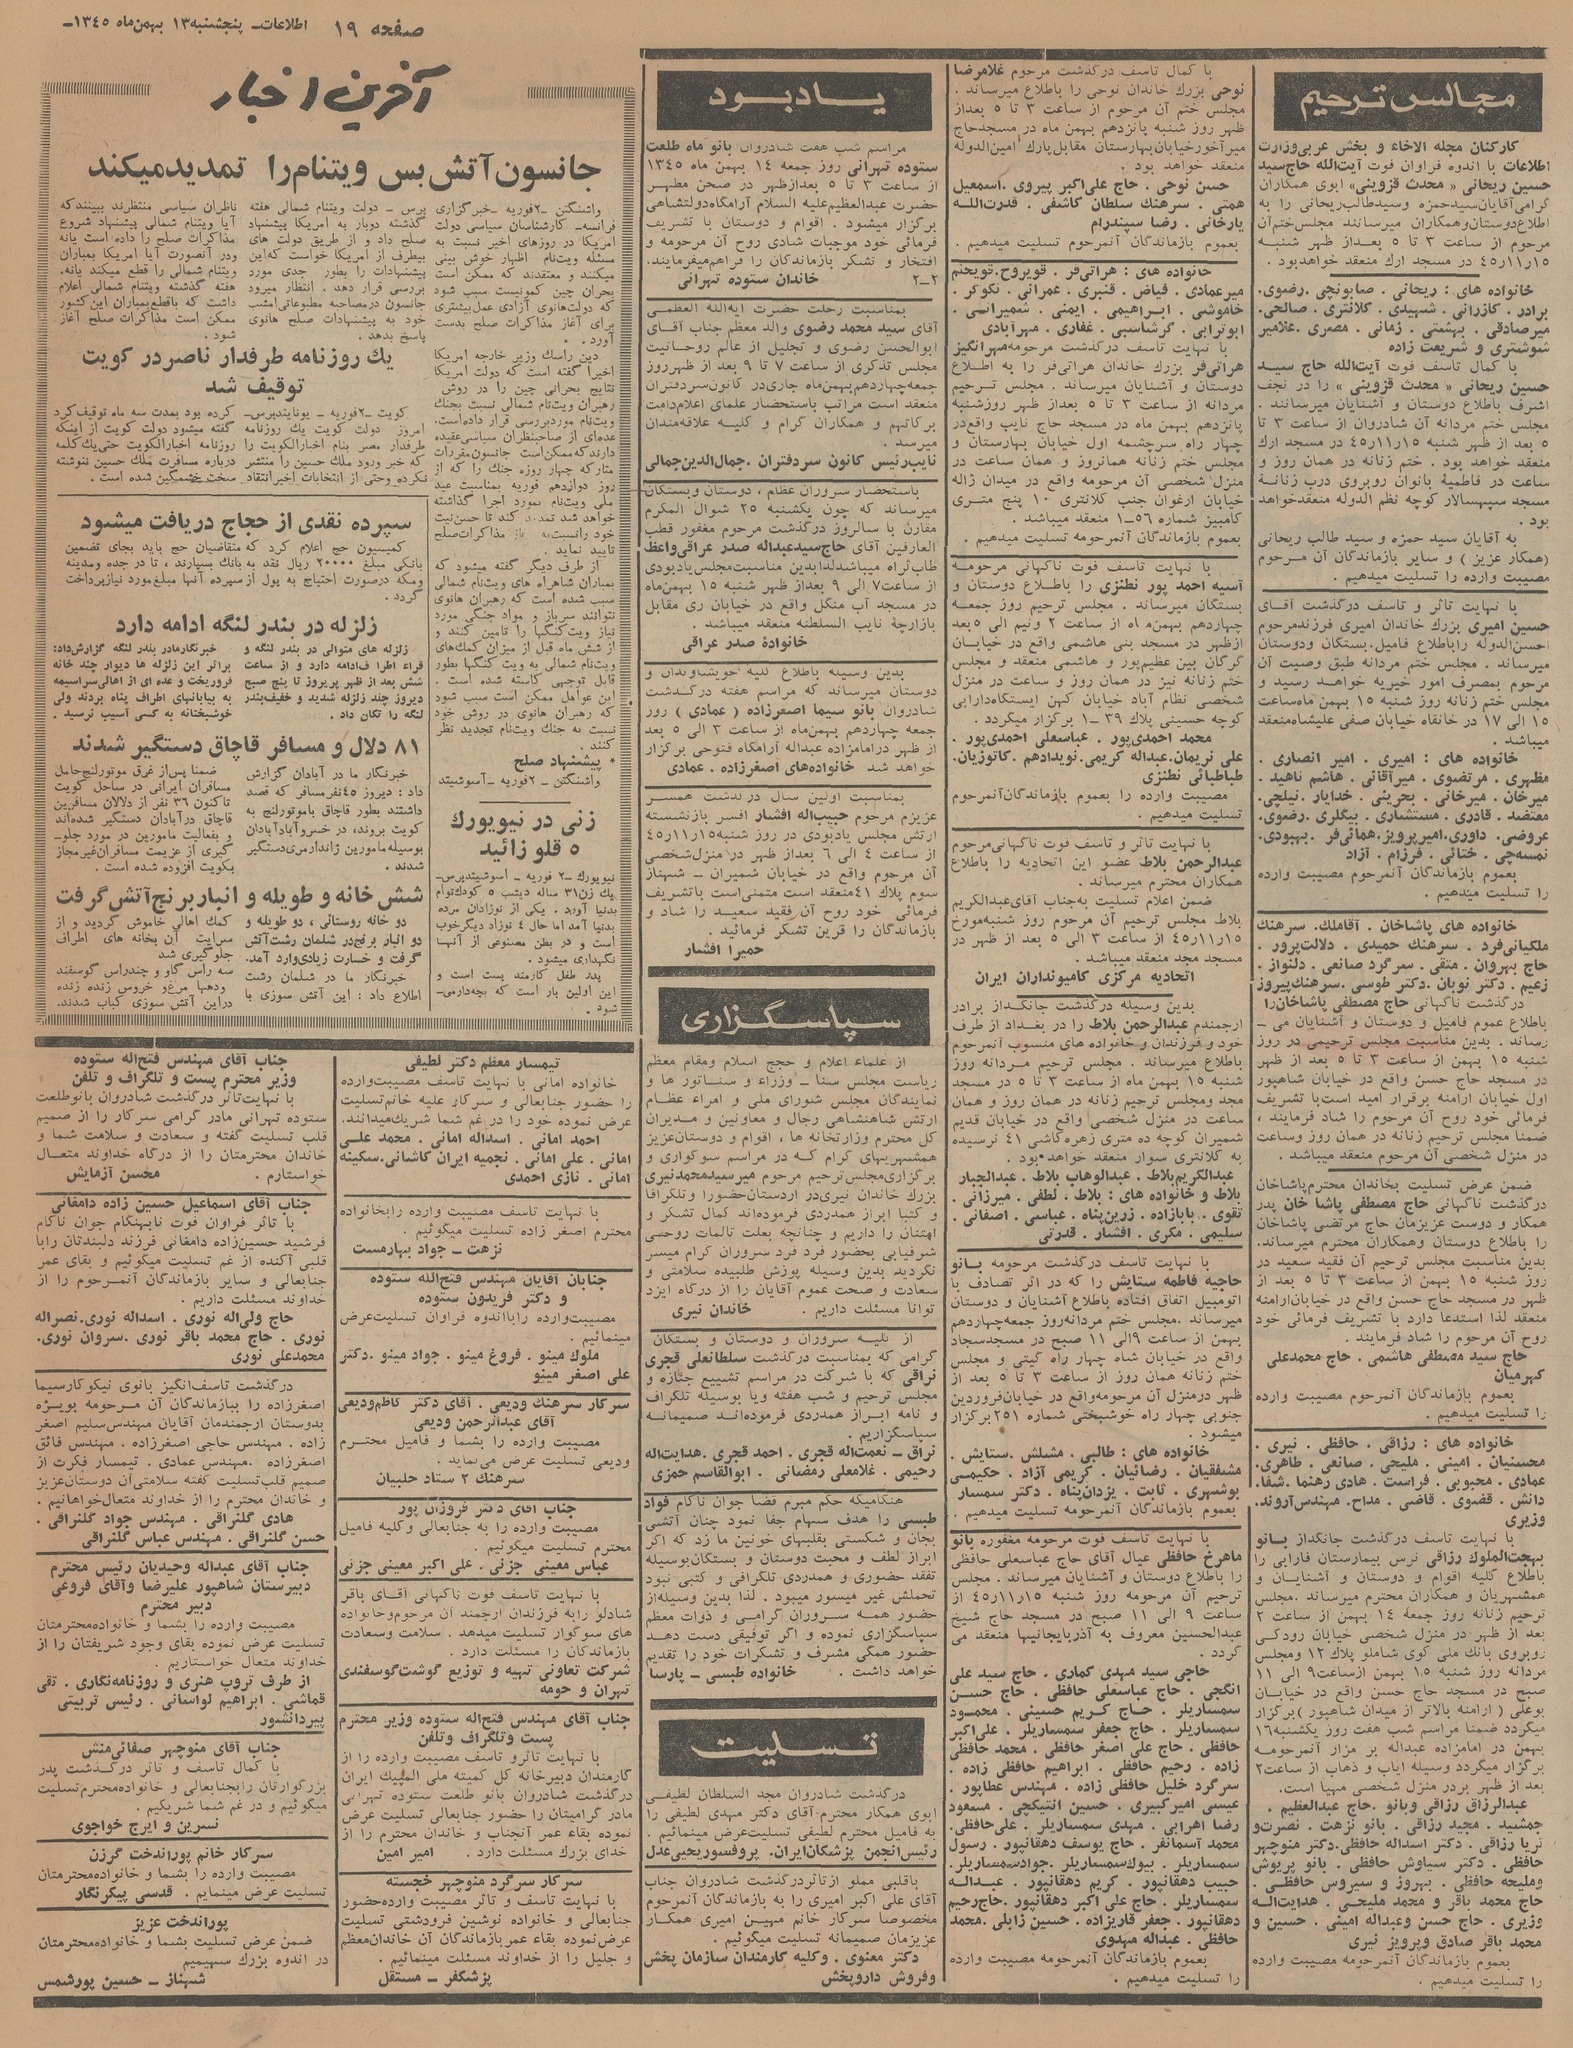 صفحه ۱۹ اطلاعات ـ پنجشنبه ۱۳ بهمن ماه ۱۳٤٥ـ
مجالس ترحیم
کارکنان مجله الاخاء و بخش عربی وزارت
اطلاعات با اندوه فراوان فوت آیت‌الله حاج سید
حسین ریحانی « محدث قزوینی» ابوی همکاران
گرامی آقایان سید حمزه و سید طالب ریحانی را به
اطلاع دوستان و همکاران میرسانند مجلس ختم آن
مرحوم از ساعت ۳ تا ٥ بعداز ظهر شنبه
٤٥ر۱۱ر۱٥ در مسجد ارك منعقد خواهد بود .
خانواده های : ریحانی . صابونچی . رضوی.
برادر . کازرانی . شهیدی . کلانتری . صالحی.
میرصادقی . بهشتی . زمانی . مصری . علامیر
شوشتری و شریعت زاده
با کمال تاسف فوت آیت‌الله حاج سید
حسین ریحانی « محدث قزوینی » را در نجف
اشرف باطلاع دوستان و آشنایان میرسانند .
مجلس ختم مردانه آن شادروان از ساعت ۳ تا
٥ بعد از ظهر شنبه ٤٥ر۱۱ر۱٥ در مسجد ارك
منعقد خواهد بود . ختم زنانه در همان روز و
ساعت در فاطمیة بانوان روبروی درب زنانهٔ
مسجد سپهسالار کوچه نظم الدوله منعقد خواهد
بود .
به آقایان سید حمزه و سید طالب ریحانی
(همکار عزیز ) و سایر بازماندگان آن مرحوم
مصیبت وارده را تسلیت میدهیم .
با نهایت تاثر و تاسف درگذشت آقای
حسین امیری بزرك خاندان امیری فرزند مرحوم
احسن‌الدوله را باطلاع فامیل. بستگان و دوستان
میرساند . مجلس ختم مردانه طبق وصیت آن
مرحوم بمصرف امور خیریه خواهد رسید و
مجلس ختم زنانه روز شنبه ۱٥ بهمن ماه ساعت
۱٥ الی ۱۷ در خانقاه خیابان صفی علیشاه منعقد
میباشد .
خانواده های : امیری . امیر انصاری .
مظهری . مرتضوی . میرآقائی . هاشم ناهید .
میرخان . میرخانی . بحرینی . خدایار . نیلچی.
معتضد . قادری . مستشاری . بیگلری . رضوی.
عروضی . داوری . امیرپرویز . همائی فر . بهبودی.
نمسه‌چی . ختائی . فرزام . آزاد
بعموم بازماندگان آنمرحوم مصیبت وارده
را تسلیت میدهیم .
خانواده های پاشاخان . آقاملك. سرهنك
ملکیانی‌فرد . سرهنك حمیدی . دلالت‌پرور .
حاج بهروان . متقی . سرگرد صانعی . دلنواز .
زعیم . دکتر نوبان . دکتر طوسی . سرهنك پیروز
درگذشت ناگهانی حاج مصطفی پاشاخان را
باطلاع عموم فامیل و دوستان و آشنایان می‌ـ
رساند . بدین مناسبت مجلس ترحیمی در روز
شنبه ۱٥ بهمن از ساعت ۳ تا ٥ بعد از ظهر
در مسجد حاج حسن واقع در خیابان شاهپور
اول خیابان ارامنه برقرار امید است با تشریف
فرمائی خود روح آن مرحوم را شاد فرمایند ،
ضمنا مجلس ترحیم زنانه در همان روز وساعت
در منزل شخصی آن مرحوم منعقد میباشد .
ضمن عرض تسلیت بخاندان محترم پاشاخان
درگذشت ناگهانی حاج مصطفی پاشا خان پدر
همکار و دوست عزیزمان حاج مرتضی پاشاخان
را باطلاع دوستان وهمکاران محترم میرساند.
بدین مناسبت مجلس ترحیم آن فقید سعید در
روز شنبه ۱٥ بهمن از ساعت ۳ تا ٥ بعد از
ظهر در مسجد حاج حسن واقع در خیابان ارامنه
منعقد لذا استدعا دارد با تشریف فرمائی خود
روح آن مرحوم را شاد فرمایند .
حاج سید مصطفی هاشمی . حاج محمد علی
کهرمیان
بعموم بازماندگان آنمرحوم مصیبت وارده
را تسلیت میدهیم .
خانواده های : رزاقی . حافظی . نیری .
محسنیان . امینی . ملیحی . صانعی . طاهری.
عمادی . محبوبی . فراست . هادی رهنما . شفا.
دانش . قضوی . قاضی . مداح . مهندس آروند.
وزیری
با نهایت تاسف درگذشت جانگداز بانو
بهجت‌الملوك رزاقی نرس بیمارستان فارابی را
باطلاع کلیه اقوام و دوستان و آشنایان و
همشهریان و همکاران محترم میرساند . مجلس
ترحیم زنانه روز جمعه ۱٤ بهمن از ساعت ۲
بعد از ظهر در منزل شخصی خیابان رودکی
روبروی بانك ملی کوی شاملو پلاك ۱۲ ومجلس
مردانه روز شنبه ۱٥ بهمن از ساعت ۹ الی ۱۱
صبح در مسجد حاج حسن واقع در خیابان
بوعلی ( ارامنه بالاتر از میدان شاهپور ) برگزار
میگردد ضمنا مراسم شب هفت روز یکشنبه ۱٦
بهمن در امامزاده عبداله بر مزار آنمرحومه
برگزار میگردد وسیله ایاب و ذهاب از ساعت ۲
بعد از ظهر بردر منزل شخصی مهیا است.
عبدالرزاق رزاقی وبانو . حاج عبدالعظیم .
جمشید . مجید رزاقی . بانو نزهت . نصرت و
ثریا رزاقی . دکتر اسداله حافظی . دکتر منوچهر
حافظی . دکتر سیاوش حافظی . بانو پریوش
وملیحه حافظی . بهروز و سیروس حافظی .
حاج محمد باقر و محمد ملیحی . هدایت‌اله
وزیری . حاج حسن وعبداله امینی . حسین و
محمد باقر صادق وپرویز نیری
بعموم بازماندگان آنمرحومه مصیبت وارده
را تسلیت میدهیم .
با کمال تاسف درگذشت مرحوم غلامرضا
نوحی بزرك خاندان نوحی را باطلاع میرساند .
مجلس ختم آن مرحوم از ساعت ۳ تا ٥ بعداز
ظهر روز شنبه پانزدهم بهمن ماه در مسجد حاج
میرآخور خیابان بهارستان مقابل پارك امین‌الدوله
منعقد خواهد بود .
حسن نوحی . حاج علی‌اکبر پیروی . اسمعیل
همتی . سرهنك سلطان کاشفی . قدرت‌الله
یارخانی . رضا سپندرام
بعموم بازماندگان آنمرحوم تسلیت میدهیم .
خانواده های : هراتی‌فر . قوپروح.
میرعمادی . فیاض . قنبری . عمرانی . نکوکر .
خاموشی . ابراهیمی . ایمنی . شمیرانی .
ابوترابی . گرشاسبی . غفاری . مهرآبادی
با نهایت تاسف درگذشت مرحومه مهرانگیز
هراتی‌فر بزرك خاندان هراتی‌فر را به اطلاع
دوستان و آشنایان میرساند . مجلس ترحیم
مردانه از ساعت ۳ تا ٥ بعداز ظهر روزشنبه
پانزدهم بهمن ماه در مسجد حاج نایب واقع در
چهار راه سرچشمه اول خیابان بهارستان و
مجلس ختم زنانه همانروز و همان ساعت در
منزل شخصی آن مرحومه واقع در میدان ژاله
خیابان ارغوان جنب کلانتری ۱۰ پنج متری
کامبیز شماره ٥٦ـ۱ منعقد میباشد .
بعموم بازماندگان آنمرحومه تسلیت میدهیم .
با نهایت تاسف فوت ناگهانی مرحومه
آسیه احمد پور نطنزی را باطلاع دوستان و
بستگان میرساند . مجلس ترحیم روز جمعه
چهاردهم بهمن ماه از ساعت ۲ ونیم الی ٥ بعد
از ظهر در مسجد بنی هاشمی واقع در خیابان
گرگان بین عظیم‌پور و هاشمی منعقد و مجلس
ختم زنانه نیز در همان روز و ساعت در منزل
شخصی نظام آباد خیابان کهن ایستگاه دارابی
کوچه حسینی پلاك ۳۹ ـ۱ برگزار میگردد .
محمد احمدی‌پور . عباسعلی احمدی‌پور .
علی نریمان . عبداله کریمی . نویدادهم . کاتوزیان.
طباطبائی نطنزی
مصیبت وارده را بعموم بازماندگان آنمرحوم
تسلیت میدهیم .
با نهایت تاثر و تاسف فوت ناگهانی مرحوم
عبدالرحمن بلاط عضو این اتحادیه را باطلاع
همکاران محترم میرساند .
ضمن اعلام تسلیت به جناب آقای عبدالکریم
بلاط مجلس ترحیم آن مرحوم روز شنبه مورخ
٤٥ر۱۱ر۱٥ از ساعت ۳ الی ٥ بعد از ظهر در
مسجد مجد منعقد میباشد .
اتحادیه مرکزی کامیونداران ایران
بدین وسیله درگذشت جانگداز برادر
ارجمندم عبدالرحمن بلاط را در بغداد از طرف
خود و فرزندان و خانواده های منسوب آنمرحوم
باطلاع میرساند . مجلس ترحیم مردانه روز
شنبه ۱٥ بهمن ماه از ساعت ۳ تا ٥ در مسجد
مجد ومجلس ترحیم زنانه در همان روز و همان
ساعت در منزل شخصی واقع در خیابان قدیم
شمیران کوچه ده متری زهره کاشی ٤۱ نرسیده
به کلانتری سوار منعقد خواهد بود .
عبدالکریم بلاط . عبدالوهاب بلاط . عبدالجبار
بلاط و خانواده های : بلاط . لطفی . میرزائی .
تقوی . بابازاده . زرین‌پناه . عباسی . اصفهانی .
سلیمی . مکری . افشار . قدرتی
با نهایت تاسف درگذشت مرحومه بانو
حاجیه فاطمه ستایش را که در اثر تصادف با
اتومبیل اتفاق افتاده باطلاع آشنایان و دوستان
میرساند . مجلس ختم مردانه روز جمعه چهاردهم
بهمن از ساعت ۹ الی ۱۱ صبح در مسجد سجاد
واقع در خیابان شاه چهار راه گیتی و مجلس
ختم زنانه همان روز از ساعت ۳ تا ٥ بعد از
ظهر در منزل آن مرحومه واقع در خیابان فروردین
جنوبی چهار راه خوشبختی شماره ۲٥۱ برگزار
میشود .
خانواده های : طالبی . مشلش . ستایش .
مشفقیان . رضائیان . کریمی آزاد . حکیمی
بوشهری . ثابت . یزدان‌پناه . دکتر سمسار
بعموم بازماندگان آنمرحومه تسلیت میدهیم .
با نهایت تاسف فوت مرحومه مغفوره بانو
ماهرخ حافظی عیال آقای حاج عباسعلی حافظی
را باطلاع دوستان و آشنایان میرساند . مجلس
ترحیم آن مرحومه روز شنبه ٤٥ر۱۱ر۱٥ از
ساعت ۹ الی ۱۱ صبح در مسجد حاج شیخ
عبدالحسین معروف به آذربایجانیها منعقد می
گردد .
حاجی سید مهدی کماری . حاج سید علی
انگجی . حاج عباسعلی حافظی . حاج حسن
سمساریلر . حاج کریم حسینی . محمود
سمساریلر . حاج جعفر سمساریلر . علی‌اکبر
حافظی . حاج علی اصغر حافظی . محمد حافظی
زاده . رحیم حافظی . ابراهیم حافظی زاده .
سرگرد خلیل حافظی زاده . مهندس عطاپور .
عیسی امیرکبیری . حسین انتیکچی . مسعود
رضا اهرابی . مهدی سمساریلر . علی حافظی.
محمد آسمانفر . حاج یوسف دهقانپور . رسول
سمساریلر . بیوك سمساریلر . جواد سمساریلر.
حبیب دهقانپور . کریم دهقانپور . عبداله
سمساریلر . حاج علی اکبر دهقانپور . حاج رحیم
دهقانپور . جعفر قاریزاده . حسین زابلی . محمد
حافظی . عبداله مهدوی
بعموم بازماندگان آنمرحومه مصیبت وارده
را تسلیت میدهیم .
یادبود
مراسم شب هفت شادروان بانو ماه طلعت
ستوده تهرانی روز جمعه ۱٤ بهمن ماه ۱۳٤٥
از ساعت ۳ تا ٥ بعدازظهر در صحن مطهر
حضرت عبدالعظیم علیه السلام آرامگاه دولتشاهی
برگزار میشود . اقوام و دوستان با تشریف
فرمائی خود موجبات شادی روح آن مرحومه و
افتخار و تشکر بازماندگان را فراهم میفرمایند.
۲ـ۲ خاندان ستوده تهرانی
بمناسبت رحلت حضرت آیه‌الله العظمی
آقای سید محمد رضوی والد معظم جناب آقای
ابوالحسن رضوی و تجلیل از عالم روحانیت
مجلس تذکری از ساعت ۷ تا ۹ بعد از ظهر روز
جمعه چهاردهم بهمن‌ماه جاری در کانون سردفتران
منعقد است مراتب باستحضار علمای اعلام دامت
برکاتهم و همکاران گرام و کلیه علاقه‌مندان
میرسد .
نایب رئیس کانون سردفتران . جمال‌الدین جمالی
باستحضار سروران عظام ، دوستان وبستگان
میرساند که چون یکشنبه ۲٥ شوال المکرم
مقارن با سالروز درگذشت مرحوم مغفور قطب
العارفین آقای حاج سید عبداله صدر عراقی واعظ
طاب ثراه میباشد لذا بدین مناسبت مجلس یادبودی
از ساعت ۷ الی ۹ بعداز ظهر شنبه ۱٥ بهمن‌ماه
در مسجد آب منگل واقع در خیابان ری مقابل
بازارچهٔ نایب السلطنه منعقد میباشد .
خانوادهٔ صدر عراقی
بدین وسیله باطلاع کلیه خویشاوندان و
دوستان میرساند که مراسم هفته درگذشت
شادروان بانو سیما اصغرزاده ( عمادی ) روز
جمعه چهاردهم بهمن ماه از ساعت ۳ الی ٥ بعد
از ظهر در امامزاده عبداله آرامگاه فتوحی برگزار
خواهد شد خانواده‌های اصغرزاده . عمادی
بمناسبت اولین سال درگذشت همسر
عزیزم مرحوم حبیب‌اله افشار افسر بازنشسته
ارتش مجلس یادبودی در روز شنبه ٤٥ر۱۱ر۱٥
از ساعت ٤ الی ٦ بعداز ظهر در منزل شخصی
آن مرحوم واقع در خیابان شمیران ـ شهناز
سوم پلاك ٤۱ منعقد است متمنی است با تشریف
فرمائی خود روح آن فقید سعید را شاد و
بازماندگان را قرین تشکر فرمائید .
حمیرا افشار
سپاسگزاری
از علماء اعلام و حجج اسلام ومقام معظم
ریاست مجلس سنا ـ وزراء و سناتور ها و
نمایندگان مجلس شورای ملی و امراء عظام
ارتش شاهنشاهی رجال و معاونین و مدیران
کل محترم وزارتخانه ها ، اقوام و دوستان عزیز
همشهریهای گرام که در مراسم سوکواری و
برگزاری مجلس ترحیم مرحوم میرسیدمحمد نیری
بزرك خاندان نیری در اردستان حضورا و تلگرافا
و کتبا ابراز همدردی فرموده‌اند کمال تشکر و
امتنان را داریم و چنانچه بعلت تالمات روحی
شرفیابی بحضور فرد فرد سروران گرام میسر
نگردید بدین وسیله پوزش طلبیده سلامتی و
سعادت و صحت عموم آقایان را از درگاه ایزد
توانا مسئلت داریم . خاندان نیری
از کلیه سروران و دوستان و بستگان
گرامی که بمناسبت درگذشت سلطانعلی قجری
نراقی که با شرکت در مراسم تشییع جنازه و
مجلس ترحیم و شب هفته ویا بوسیله تلگراف
و نامه ابراز همدردی فرموده‌اند صمیمانه
سپاسگزاریم .
نراق ـ نعمت‌اله قجری . احمد قجری . هدایت‌اله
رحیمی . غلامعلی رمضانی . ابوالقاسم حمزی
هنگامیکه حکم مبرم قضا جوان ناکام فواد
طبسی را هدف سهام جفا نمود چنان آتشی
بجان و شکستی بقلبهای خونین ما زد که اگر
ابراز لطف و محبت دوستان و بستگان بوسیله
تفقد حضوری و همدردی تلگرافی و کتبی نبود
تحملش غیر میسور میبود . لذا بدین وسیله از
حضور همه سروران گرامی و ذوات معظم
سپاسگزاری نموده و اگر توفیقی دست دهد
حضور همگی مشرف و تشکرات خود را تقدیم
خواهد داشت . خانواده طبسی ـ پارسا
تسلیت
درگذشت شادروان مجد السلطان لطیفی
ابوی همکار محترم آقای دکتر مهدی لطیفی را
به فامیل محترم لطیفی تسلیت عرض مینمائیم .
رئیس انجمن پزشکان ایران. پروفسور یحیی عدل
با قلبی مملو از تاثر درگذشت شادروان جناب
آقای علی اکبر امیری را به بازماندگان آنمرحوم
مخصوصا سرکار خانم مهین امیری همکار
عزیزمان صمیمانه تسلیت میگوئیم .
دکتر معنوی . وکلیه کارمندان سازمان پخش
وفروش داروپخش
آخرین اخبار
جانسون آتش بس ویتنام را تمدید میکند
واشنگتن ـ۲فوریه ـخبرگزاری
فرانسه‌ـ کارشناسان سیاسی دولت
امریکا در روزهای اخیر نسبت به
مسئله ویت‌نام اظهار خوش بینی
میکنند و معتقدند که ممکن است
بحران چین کمونیست سبب شود
که دولت‌هانوی آزادی عمل‌بیشتری
برای آغاز مذاکرات صلح بدست
آورد . .
دین راسك وزیر خارجه امریکا
اخیراً گفته است که دولت امریکا
نتایج بحرانی چین را در روش
رهبران ویت‌نام شمالی نسبت بجنك
ویت‌نام مورد بررسی قرار داده‌است.
عده‌ای از صاحبنظران سیاسی عقیده
دارند که ممکن است جانسون مقررات
متارکه چهار روزه جنك را که از
روز دوازدهم فوریه بمناسبت عید
ملی ویت‌نام بمورد اجرا گذاشته
خواهد شد تمدید کند تا حسن‌نیت
خود را نسبت به آغاز مذاکرات صلح
تایید نماید .
از طرف دیگر گفته میشود که
بمباران شاهراه های ویت‌نام شمالی
سبب شده است که رهبران هانوی
نتوانند سرباز و مواد جنگی مورد
نیاز ویت‌کنگها را تامین کنند و
از شش ماه قبل از میزان کمك‌های
ویت‌نام شمالی به ویت کنگها بطور
قابل توجهی کاسته شده است .
این عوامل ممکن است سبب شود
که رهبران هانوی در روش خود
نسبت به جنك ویت‌نام تجدید نظر
کنند .
* پیشنهاد صلح
واشنگتن ـ ۲فوریه ـ آسوشیتد
پرس ـ دولت ویتنام شمالی هفته
گذشته دوبار به امریکا پیشنهاد
صلح داد و از طریق دولت های
بیطرف از امریکا خواست که این
پیشنهادات را بطور جدی مورد
بررسی قرار دهد . انتظار میرود
جانسون درمصاحبه مطبوعاتی امشب
خود به پیشنهادات صلح هانوی
پاسخ بدهد .
ناظران سیاسی منتظرند ببینند که
آیا ویتنام شمالی پیشنهاد شروع
مذاکرات صلح را داده است یانه
ودر آنصورت آیا امریکا بمباران
ویتنام شمالی را قطع میکند یانه.
هفته گذشته ویتنام شمالی اعلام
داشت که باقطع بمباران این کشور
ممکن است مذاکرات صلح آغاز
شود .
یك روزنامه طرفدار ناصر در کویت
توقیف شد
کویت ـ۲فوریه ـ یونایتدپرس‌ـ
امروز دولت کویت یك روزنامه
طرفدار مصر بنام اخبارالکویت را
که خبر ورود ملك حسین را منتشر
نکرده وحتی از انتخابات اخیر انتقاد
کرده بود بمدت سه ماه توقیف کرد
گفته میشود دولت کویت از اینکه
روزنامه اخبارالکویت حتی یك کلمه
درباره مسافرت ملك حسین ننوشته
سخت خشمگین شده است .
سپرده نقدی از حجاج دریافت میشود
کمیسیون حج اعلام کرد که متقاضیان حج باید بجای تضمین
بانکی مبلغ ۲۰۰۰۰ ریال نقد به بانك بسپارند ، تا در جده ومدینه
ومکه درصورت احتیاج به پول از سپرده آنها مبلغ مورد نیاز پرداخت
گردد .
زلزله در بندر لنگه ادامه دارد
زلزله های متوالی در بندر لنگه و
قراء اطراف ادامه دارد و از ساعت
شش بعد از ظهر پریروز تا پنج صبح
دیروز چند زلزله شدید و خفیف بندر
لنگه را تکان داد .
خبرنگار مادر بندر لنگه گزارش داد:
براثر این زلزله ها دیوار چند خانه
فروریخت و عده ای از اهالی سراسیمه
به بیابانهای اطراف پناه بردند ولی
خوشبختانه به کسی آسیب نرسید .
۸۱ دلال و مسافر قاچاق دستگیر شدند
خبرنگار ما در آبادان گزارش
داد : دیروز ٤٥نفر مسافر که قصد
داشتند بطور قاچاق با موتورلنج به
کویت بروند، در خسروآباد آبادان
بوسیله مامورین ژاندارمری دستگیر
شدند .
ضمنا پس‌از غرق موتورلنج حامل
مسافران ایرانی در ساحل کویت
تاکنون ۳٦ نفر از دلالان مسافرین
قاچاق در آبادان دستگیر شده‌اند
و بفعالیت مامورین در مورد جلوـ
گیری از عزیمت مسافران غیرمجاز
بکویت افزوده شده است .
شش خانه و طویله و انبار برنج آتش گرفت
دو خانه روستائی ، دو طویله و
دو انبار برنج در شلمان رشت آتش
گرفت و خسارت زیادی وارد آمد.
خبرنگار ما در شلمان رشت
اطلاع داد : این آتش سوزی با
کمك اهالی خاموش گردید و از
سرایت آن بخانه های اطراف
جلوگیری شد .
سه راس گاو و چندراس گوسفند
ودهها مرغ و خروس زنده زنده
در این آتش سوزی کباب شدند.
زنی در نیویورك
٥ قلو زائید
نیویورك ـ۲ فوریه ـ آسوشیتدپرس‌ـ
یك زن ۳۱ ساله دیشب ٥ کودك توام
بدنیا آورد . یکی از نوزادان مرده
بدنیا آمد اما حال ٤ نوزاد دیگر خوب
است و در بطن مصنوعی از آنها
نگهداری میشود .
پدر طفل کارمند پست است و
این اولین بار است که بچه‌دارمی‌ـ
شود .
تیمسار معظم دکتر لطیفی
خانواده امانی با نهایت تاسف مصیبت وارده
را حضور جنابعالی و سرکار علیه خانم تسلیت
عرض نموده خود را در غم شما شریك میدانند.
احمد امانی . اسداله امانی . محمد علی
امانی . علی امانی . نجمیه ایران کاشانی . سکینه
امانی . نازی احمدی
با نهایت تاسف مصیبت وارده را بخانواده
محترم اصغر زاده تسلیت میگوئیم .
نزهت ـ جواد بهارمست
جنابان آقایان مهندس فتح‌الله ستوده
و دکتر فریدون ستوده
مصیبت وارده را با اندوه فراوان تسلیت عرض
مینمائیم .
ملوك مینو . فروغ مینو . جواد مینو . دکتر
علی اصغر مینو
سرکار سرهنك ودیعی . آقای دکتر کاظم ودیعی
آقای عبدالرحمن ودیعی
مصیبت وارده را بشما و فامیل محترم
ودیعی تسلیت عرض می‌نماید .
سرهنك ۲ ستاد حلبیان
جناب آقای دکتر فروزان پور
مصیبت وارده را به جنابعالی وکلیه فامیل
محترم تسلیت میگوئیم .
عباس معینی جزنی . علی اکبر معینی جزنی
با نهایت تاسف فوت ناگهانی آقای باقر
شادلو را به فرزندان ارجمند آن مرحوم وخانواده
های سوگوار تسلیت میدهد . سلامت وسعادت
بازماندگان را مسئلت دارد .
شرکت تعاونی تهیه و توزیع گوشت گوسفندی
تهران و حومه
جناب آقای مهندس فتح‌اله ستوده وزیر محترم
پست وتلگراف وتلفن
با نهایت تاثرو تاسف مصیبت وارده را از
کارمندان دبیرخانه کل کمیته ملی المپیك ایران
درگذشت شادروان بانو طلعت ستوده تهرانی
مادر گرامیتان را حضور جنابعالی تسلیت عرض
نموده بقاء عمر آنجناب و خاندان محترم را از
خدای بزرك مسئلت دارد . امیر امین
سرکار سرگرد منوچهر خجسته
با نهایت تاسف و تاثر مصیبت وارده حضور
جنابعالی و خانواده نوشین فرودشتی تسلیت
عرض نموده بقاء عمر بازماندگان آن خاندان معظم
و جلیل را از خداوند مسئلت مینمائیم .
پزشگفر ـ مستقل
جناب آقای مهندس فتح‌اله ستوده
وزیر محترم پست و تلگراف و تلفن
با نهایت تاثر درگذشت شادروان بانو طلعت
ستوده تهرانی مادر گرامی سرکار را از صمیم
قلب تسلیت گفته و سعادت و سلامت شما و
خاندان محترمتان را از درگاه خداوند متعال
خواستارم . محسن آزمایش
جناب آقای اسماعیل حسین زاده دامغانی
با تاثر فراوان فوت نابهنگام جوان ناکام
فرشید حسین‌زاده دامغانی فرزند دلبندتان را با
قلبی آکنده از غم تسلیت میگوئیم و بقای عمر
جنابعالی و سایر بازماندگان آنمرحوم را از
خداوند مسئلت داریم .
حاج ولی‌اله نوری . اسداله نوری . نصراله
نوری . حاج محمد باقر نوری . سروان نوری.
محمدعلی نوری
درگذشت تاسف‌انگیز بانوی نیکوکار سیما
اصغرزاده را ببازماندگان آن مرحومه بویژه
بدوستان ارجمندمان آقایان مهندس سلیم اصغر
زاده . مهندس حاجی اصغرزاده . مهندس فائق
اصغرزاده . مهندس عمادی . تیمسار فکرت از
صمیم قلب تسلیت گفته سلامتی آن دوستان عزیز
و خاندان محترم را از خداوند متعال خواهانیم .
هادی گلنراقی . مهندس جواد گلنراقی .
حسن گلنراقی . مهندس عباس گلنراقی
جناب آقای عبداله وحیدیان رئیس محترم
دبیرستان شاهپور علیرضا و آقای فروغی
دبیر محترم
مصیبت وارده را بشما و خانواده محترمتان
تسلیت عرض نموده بقای وجود شریفتان را از
خداوند متعال خواستاریم .
از طرف تروپ هنری و روزنامه‌نگاری . تقی
قماشی . ابراهیم لواسانی . رئیس تربیتی
پیردانشور
جناب آقای منوچهر صفائی‌منش
با کمال تاسف و تاثر درگذشت پدر
بزرگوارتان را بجنابعالی و خانواده محترم تسلیت
میگوئیم و در غم شما شریکیم .
نسرین و ایرج خواجوی
سرکار خانم پوراندخت گرزن
مصیبت وارده را بشما و خانواده محترمتان
تسلیت عرض مینمایم . قدسی پیگرنگار
پوراندخت عزیز
ضمن عرض تسلیت بشما و خانواده محترمتان
در اندوه بزرك سهیمیم
شهناز ـ حسین پورشمس